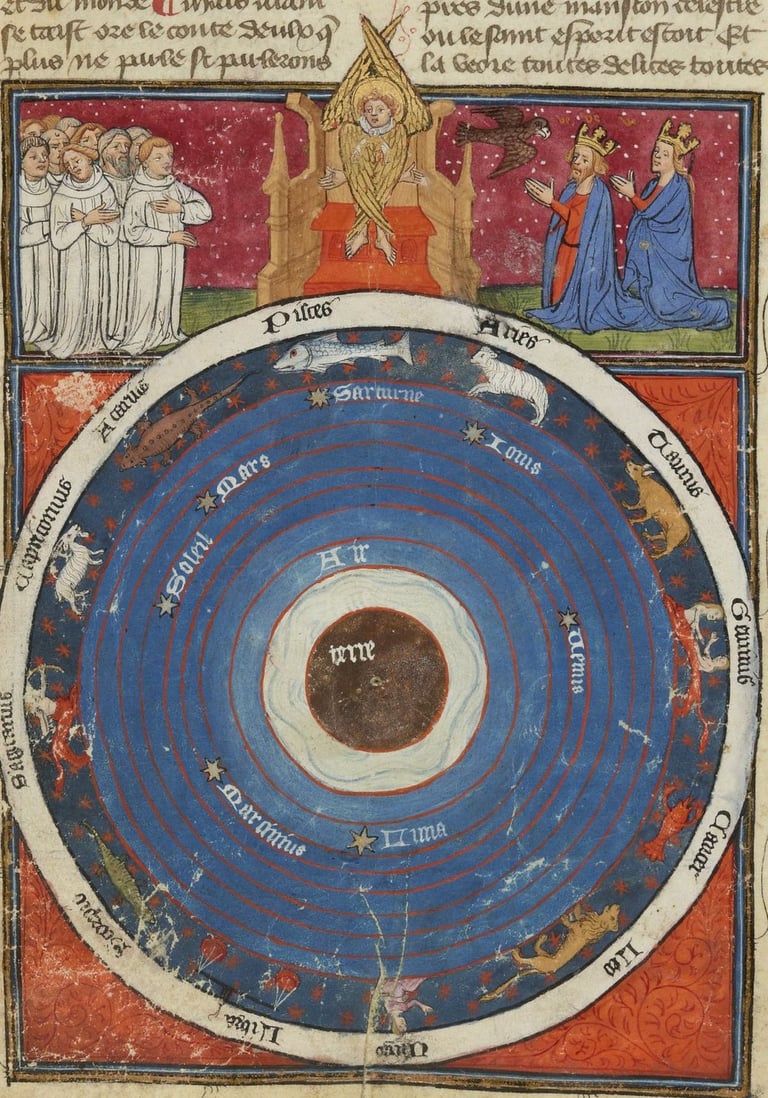 et du monde
se taist ore le conte deulx q̃
plus ne
pres dune mansion celestie
ou le saint esperit estoit Et
la veoit toutes delices toutes
Pisces
Aries
Taurus
Geminis
Cancer
Leo
Virgo
Libra
Sagitarius
Capricornus
Acarius
Sarturne
Iouis
Mars
Soleil
Air
terre
Uenus
Marqurius
Luna